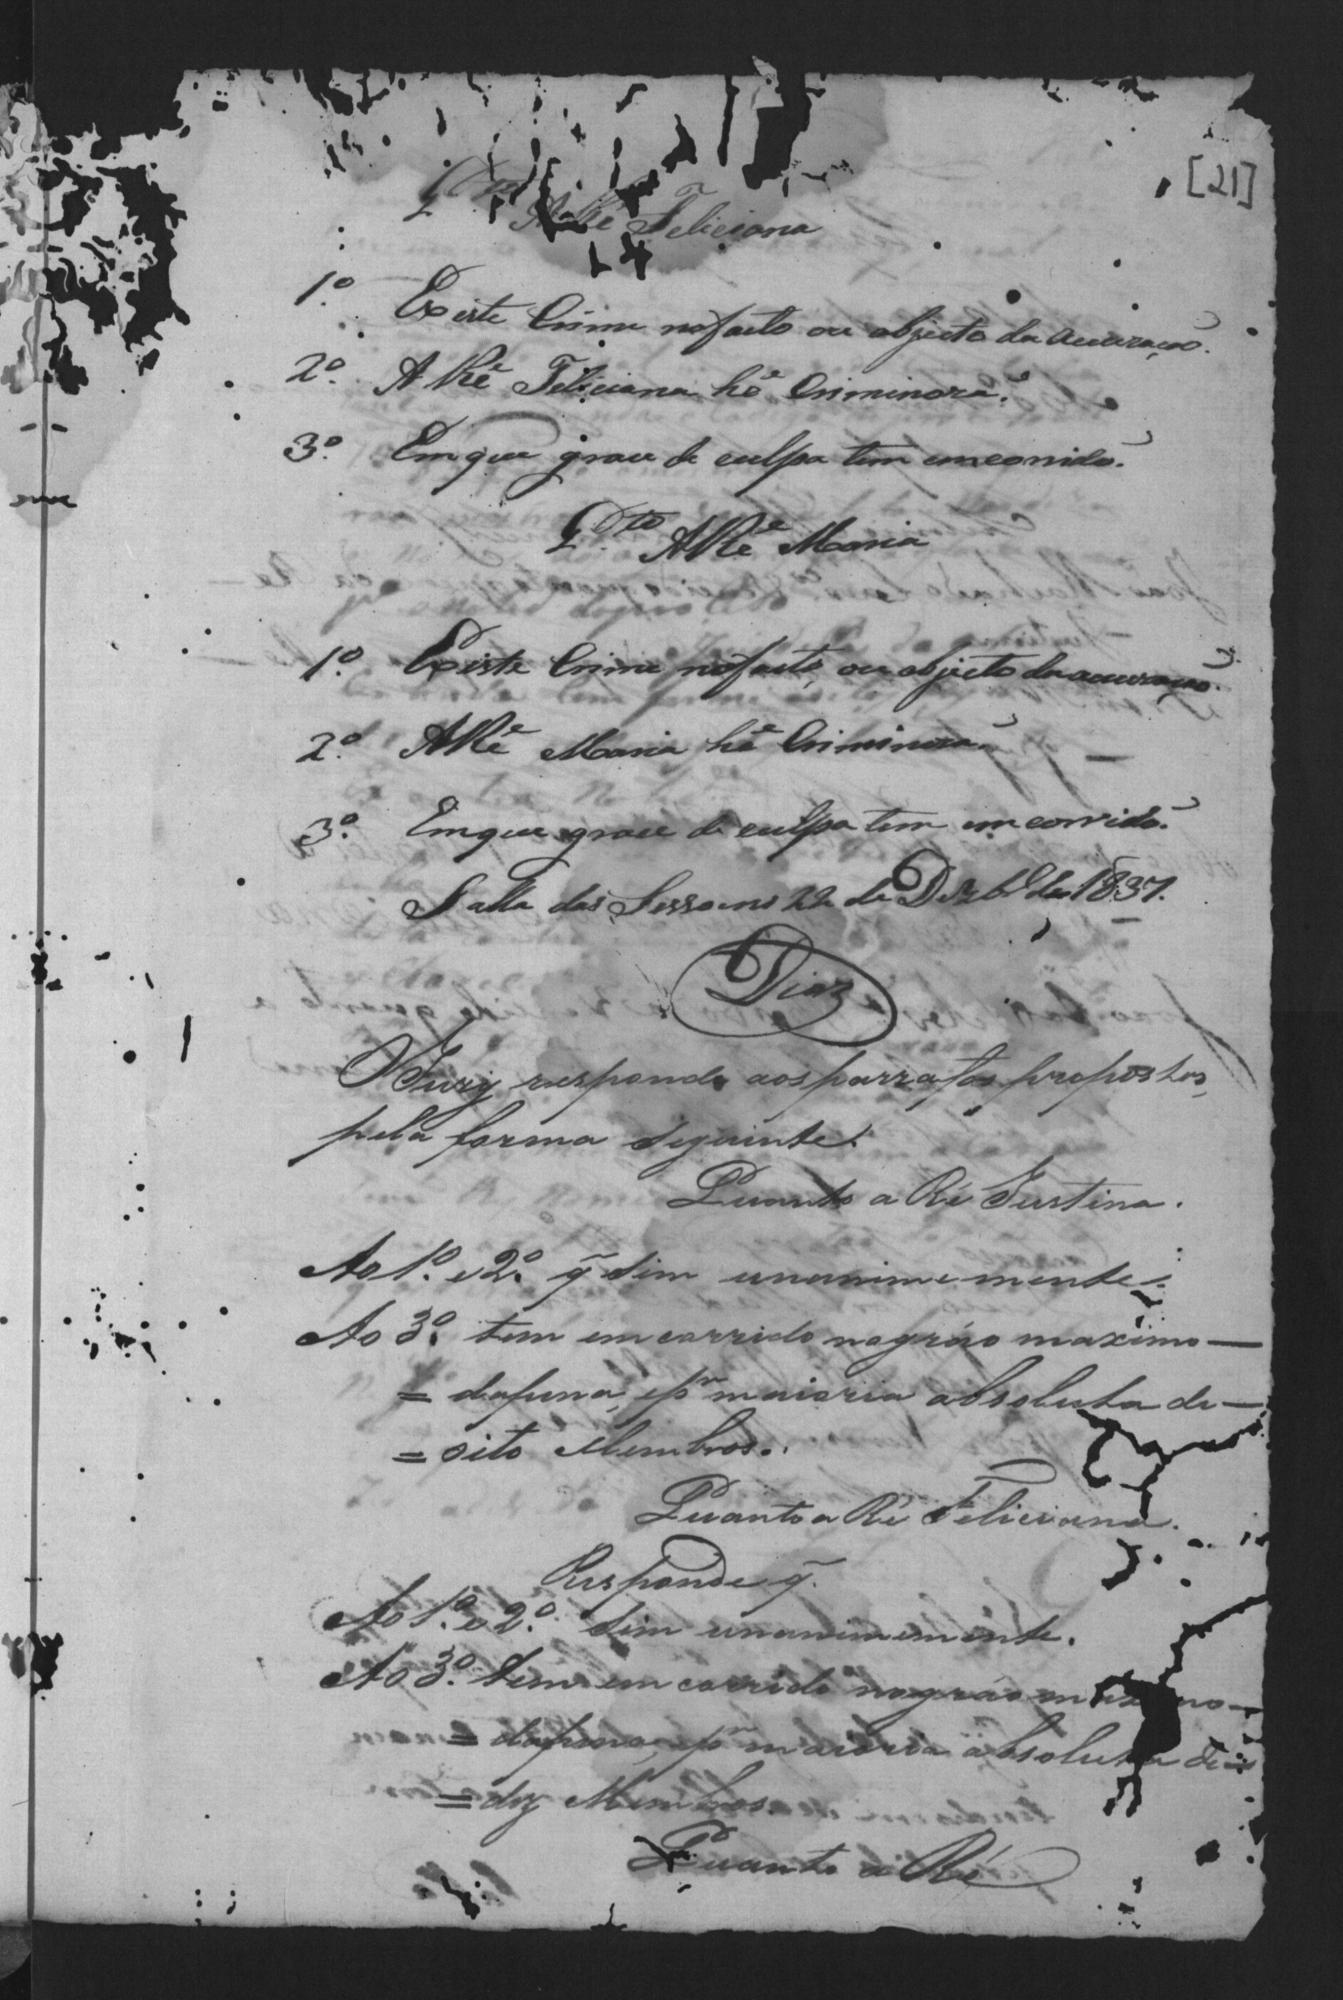 [21]
Q.to A Ré Feliciana
1º. Existe Crime no facto ou objecto da acuzaçaõ?
2º. A Ré Feliciana hé Criminoza?
3º. Em que grau de culpa tem encorrido?
Q.to A Ré Maria
1º. Existe Crime no facto, ou objecto da acuzaçaõ?
2º. A Ré Maria hé Criminoza?
3º. Em que grau de culpa tem encorrido?
Salla das Sessoens 22 de Dezbro de 1837.
Dias
O Jury responde aos parrafos propostos,
pela forma seguinte.
Quanto a Ré Justina.
Ao 1º. e 2º. q̃ Sim unanimemente.
Ao 3º. tem encorrido no gráo maximo—
= da pena, e pr maioria absoluta de—
= oito Membros.
Quanto a Ré Feliciana.
Responde q̃.
Ao 1º. e 2º. Sim unanimemente.
Ao 3º. tem encorrido no gráo maximo—
= da pena, e pr maioria absoluta de—
= dez Membros
Quanto a Ré